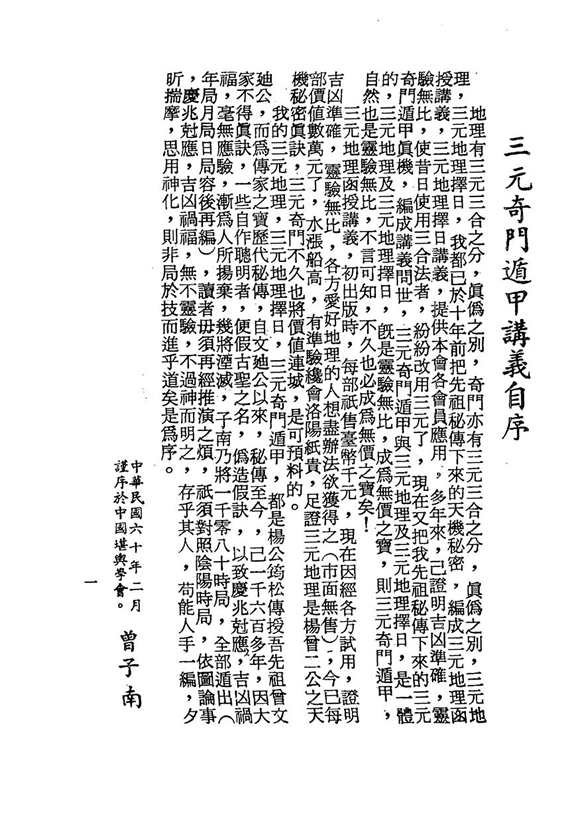 三元奇門遁甲講義自序
地理有三元三合之分，眞僞之別，奇門亦有三元三合之分，眞僞之別，三元地
理，三元地理擇日，我都已於十年前把先祖秘傳下來的天機秘密，編成三元地理函
授講義，三元地理擇日講義，提供本會各會員應用，多年來，己證明吉凶準確，靈
驗無比，使昔日使用三合法者，紛紛改用三元了，現在又把我先祖秘傳下來的三元
奇門遁甲眞機，編成講義問世，三元奇門遁甲與三元地理及三元地理擇日，是一體
的，三元地理及三元地理擇日，旣是靈驗無比，成爲無價之寶，則三元奇門遁甲，
自然也是靈驗無比，不言可知，不久也必成爲無價之寶矣！
三元地理函授講義，初出版時，每部祇售臺幣千元，現在因經各方試用，證明
吉凶準確，靈驗無比，各方愛好地理的人想盡辦法欲獲得之（市面無售），今已每
部價值數萬元了，水漲船高，有準驗纔會洛陽紙貴，足證三元地理是楊曾二公之天
機秘密眞訣，三元奇門不久也將價值連城，是可預料的。
我的三元地理，三元地理擇日，三元奇門遁甲，都是楊公筠松傳授吾先祖曾文
廸公，而爲傳家之寶歷代秘傳，自文廸公以來，秘傳至今，己一千六百多年，因大
家不得眞訣，一些自作聰明者，便假古聖之名，僞造假訣，以致慶兆尅應，吉凶禍
福，毫無應驗，漸爲人所揚棄，幾將湮滅，子南乃將一千零八十時局，全部遁出（
年局月局日局容後再編），讀者毋須再經推演之煩，祇須對照陰陽時局，依圖論事
，慶兆尅應，吉凶禍福，無不靈驗，不過神而明之，存乎其人，苟能人手一編，夕
昕揣摩，思用神化，則非局於技而進乎道矣是爲序。
中華民國六十年二月
謹序於中國堪輿學會。
曾子南
一